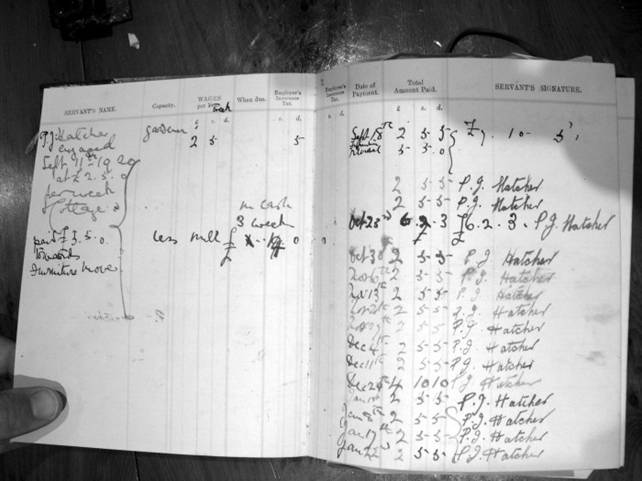 SERVANT'S NAME. Capacity. WAGES per When due. Employer's Insurance Tax.
week
£ s. d. s. d.
P.J. Hatcher gardener 2 5 5
engaged
Sept 11th 1920
at £2.5.0
per week
& Cottage
in cash
3 week
paid £3.5.0 less milk £
towards
furniture move
Employer's Insurance Tax. Date of Payment. Total Amount Paid. SERVANT'S SIGNATURE.
s. d. £ s. d.
Sept 18th 2 5 5 £7. 10 5
5 5 0
2 5 5 P.J. Hatcher
2 5 5 P.J. Hatcher
Oct 23rd 6 2 3 £6.2.3. P.J. Hatcher
Oct 30 2 5 5 P.J. Hatcher
Nov 6th 2 5 5 P.J. Hatcher
Nov 13th 2 5 5 P.J. Hatcher
2 5 5 P.J. Hatcher
2 5 5 P.J. Hatcher
Dec 4th 2 5 5 P.J. Hatcher
Dec 11th 2 5 5 P.J. Hatcher
Dec 24th 4 10 10 P.J. Hatcher
2 5 5 P.J. Hatcher
Jan 8th 2 5 5 P.J. Hatcher
Jan 17th 2 5 5 P.J. Hatcher
Jan 22nd 2 5 5 P.J. Hatcher